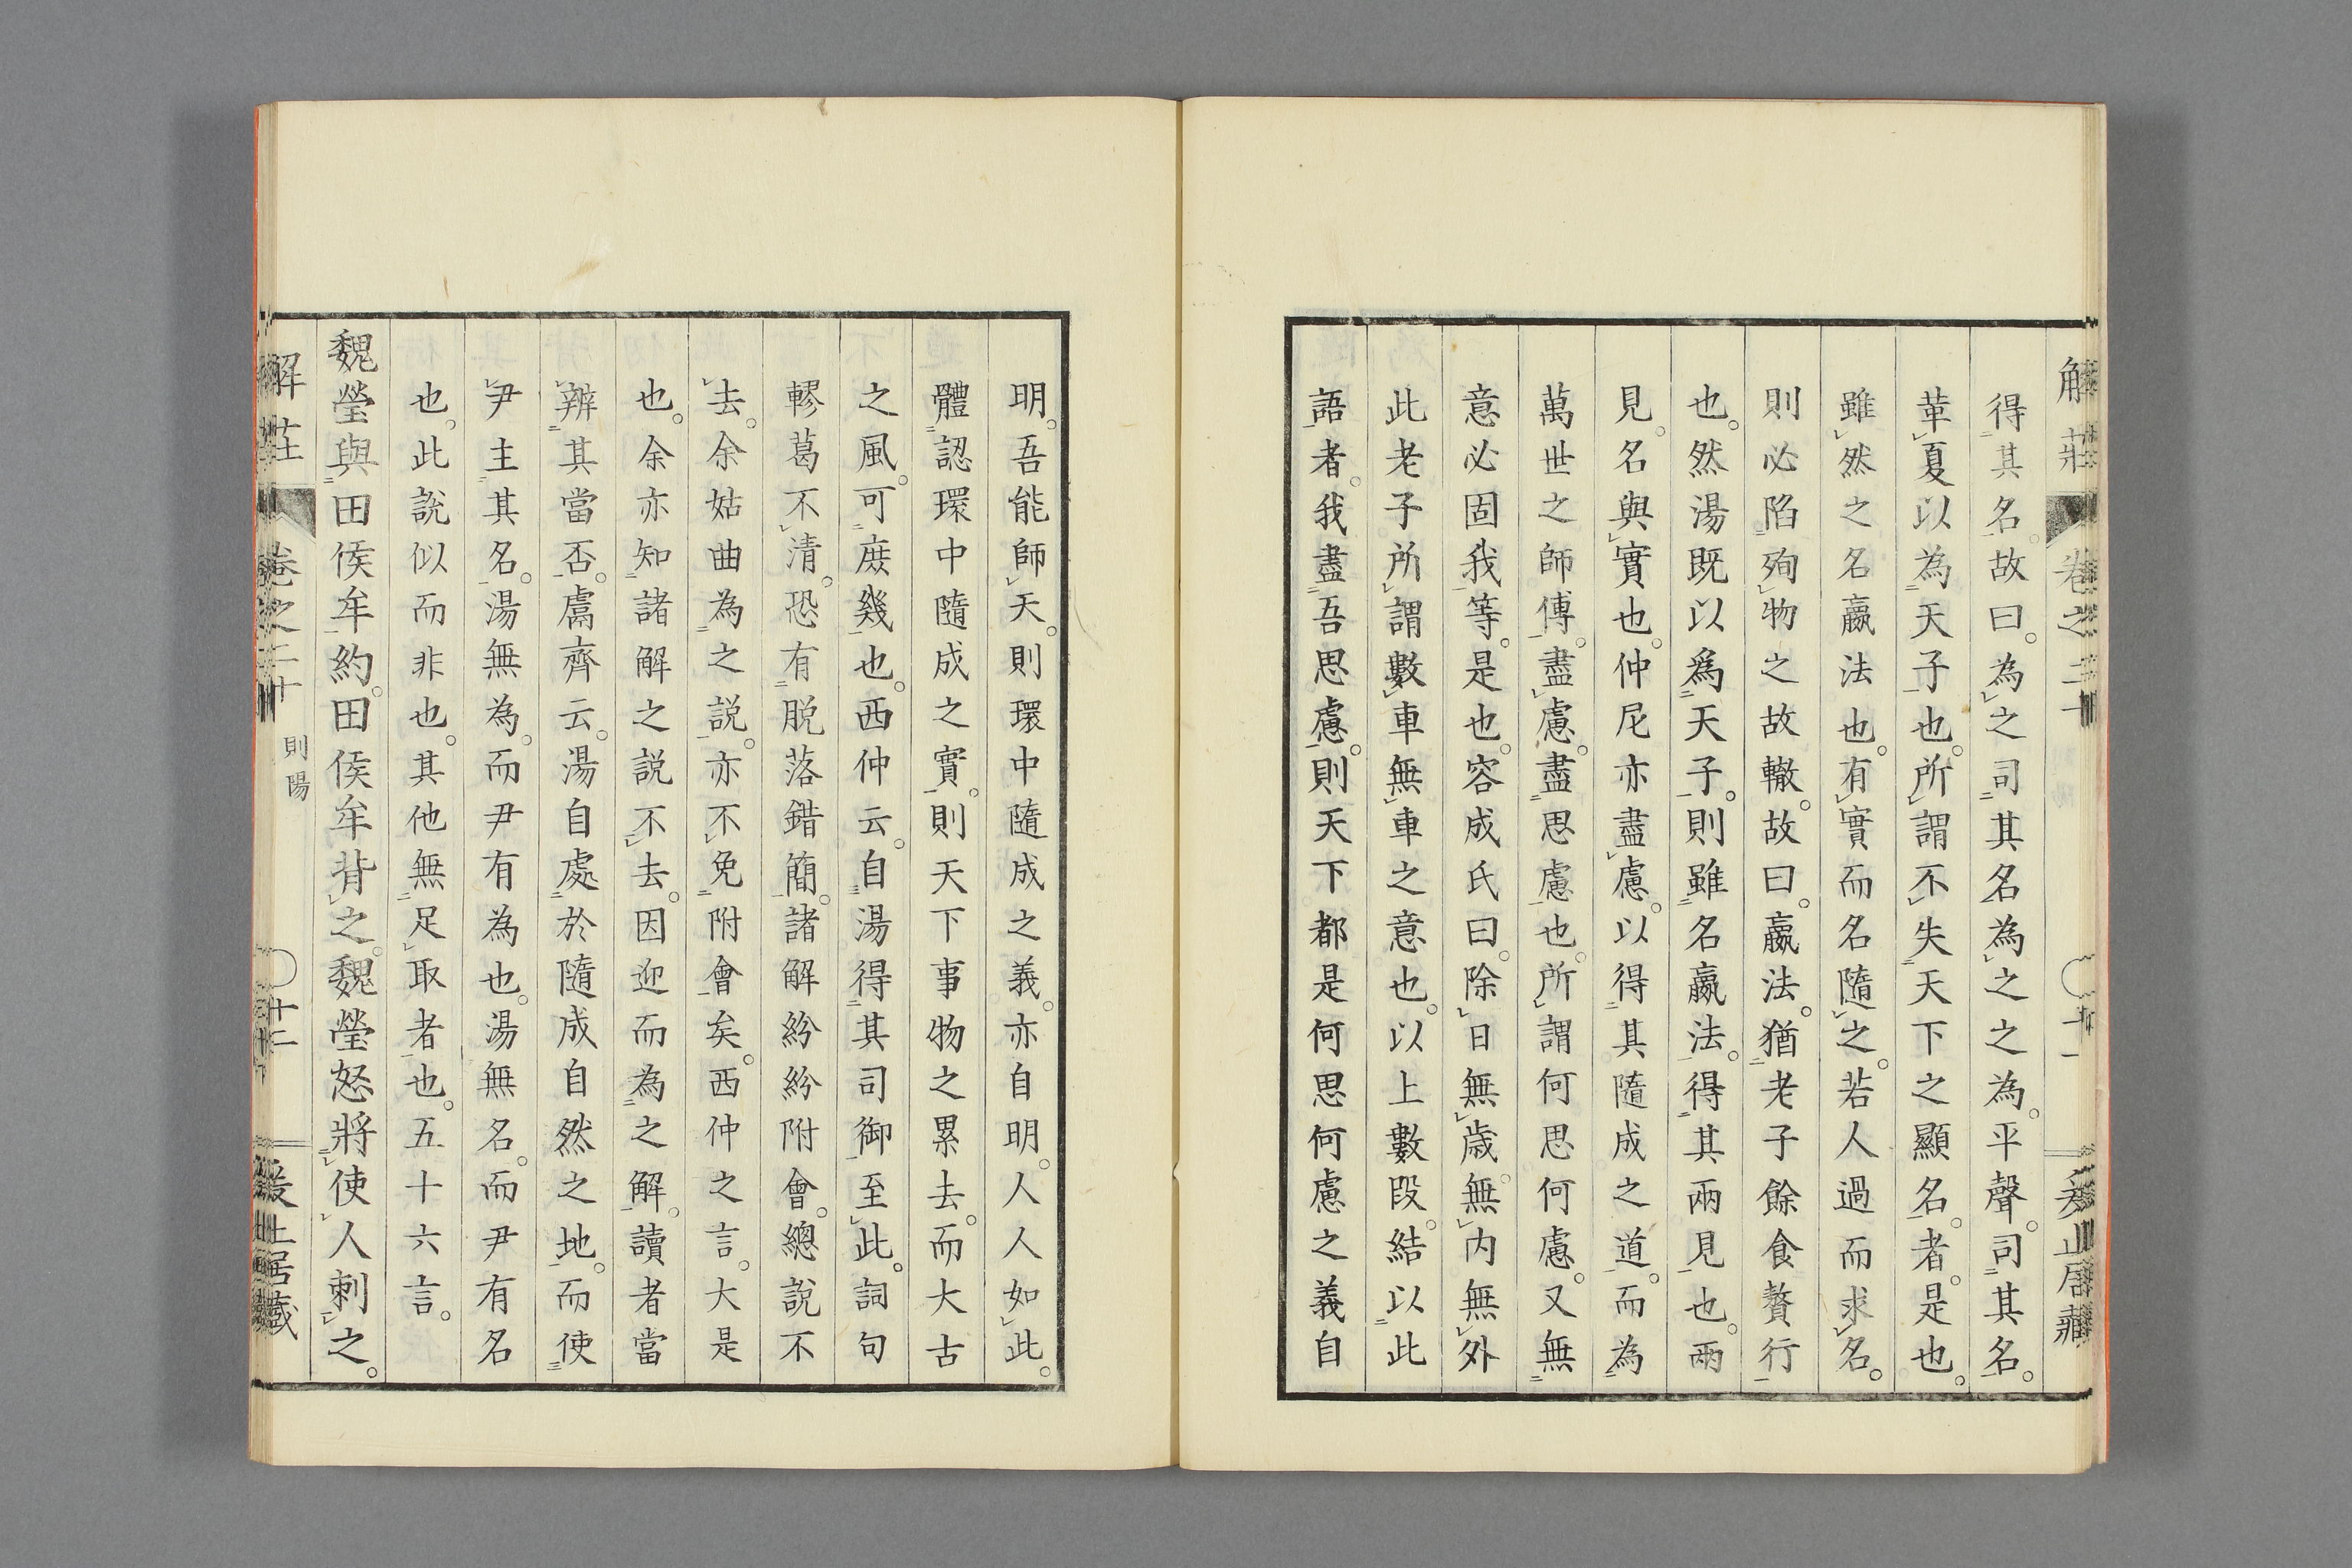 解莊　卷之二十　十一
得其名。故曰。為之司其名為之之為。平聲。司其名。
革夏以為天子也。所謂不失天下之顯名。者。是也。
雖然之名嬴法也。有實而名隨之。若人過而求名。
則必陷殉物之故轍。故曰。嬴法。猶老子餘食贅行
也。然湯既以爲天子。則雖名嬴法。得其兩見也。兩
見。名與實也。仲尼亦盡慮。以得其隨成之道。而為
萬世之師傅。盡慮。盡思慮也。所謂何思何慮。又無
意必固我等。是也。容成氏曰。除日無歲。無內無外
此老子所謂數車無車之意也。以上數段。結以此
語者。我盡吾思慮。則天下都是何思何慮之義自
明。吾能師天。則環中隨成之義。亦自明。人人如此。
體認環中隨成之實。則天下事物之累去。而大古
之風。可庶幾也。西仲云。自湯得其司御至此。詞句
轇葛不清。恐有脫落錯簡。諸解紛紛附會。總說不
去。余姑曲為之説。亦不免附會矣。西仲之言。大是
也。余亦知諸解之説不去。因迎而為之解。讀者當
辨其當否。鬳齊云。湯自處於隨成自然之地。而使
尹主其名。湯無為。而尹有為也。湯無名。而尹有名
也。此說似而非也。其他無足取者也。五十六言。
魏瑩與田侯牟約。田侯牟背之。魏瑩怒將使人刺之。
解莊　卷之二十　則陽　十二